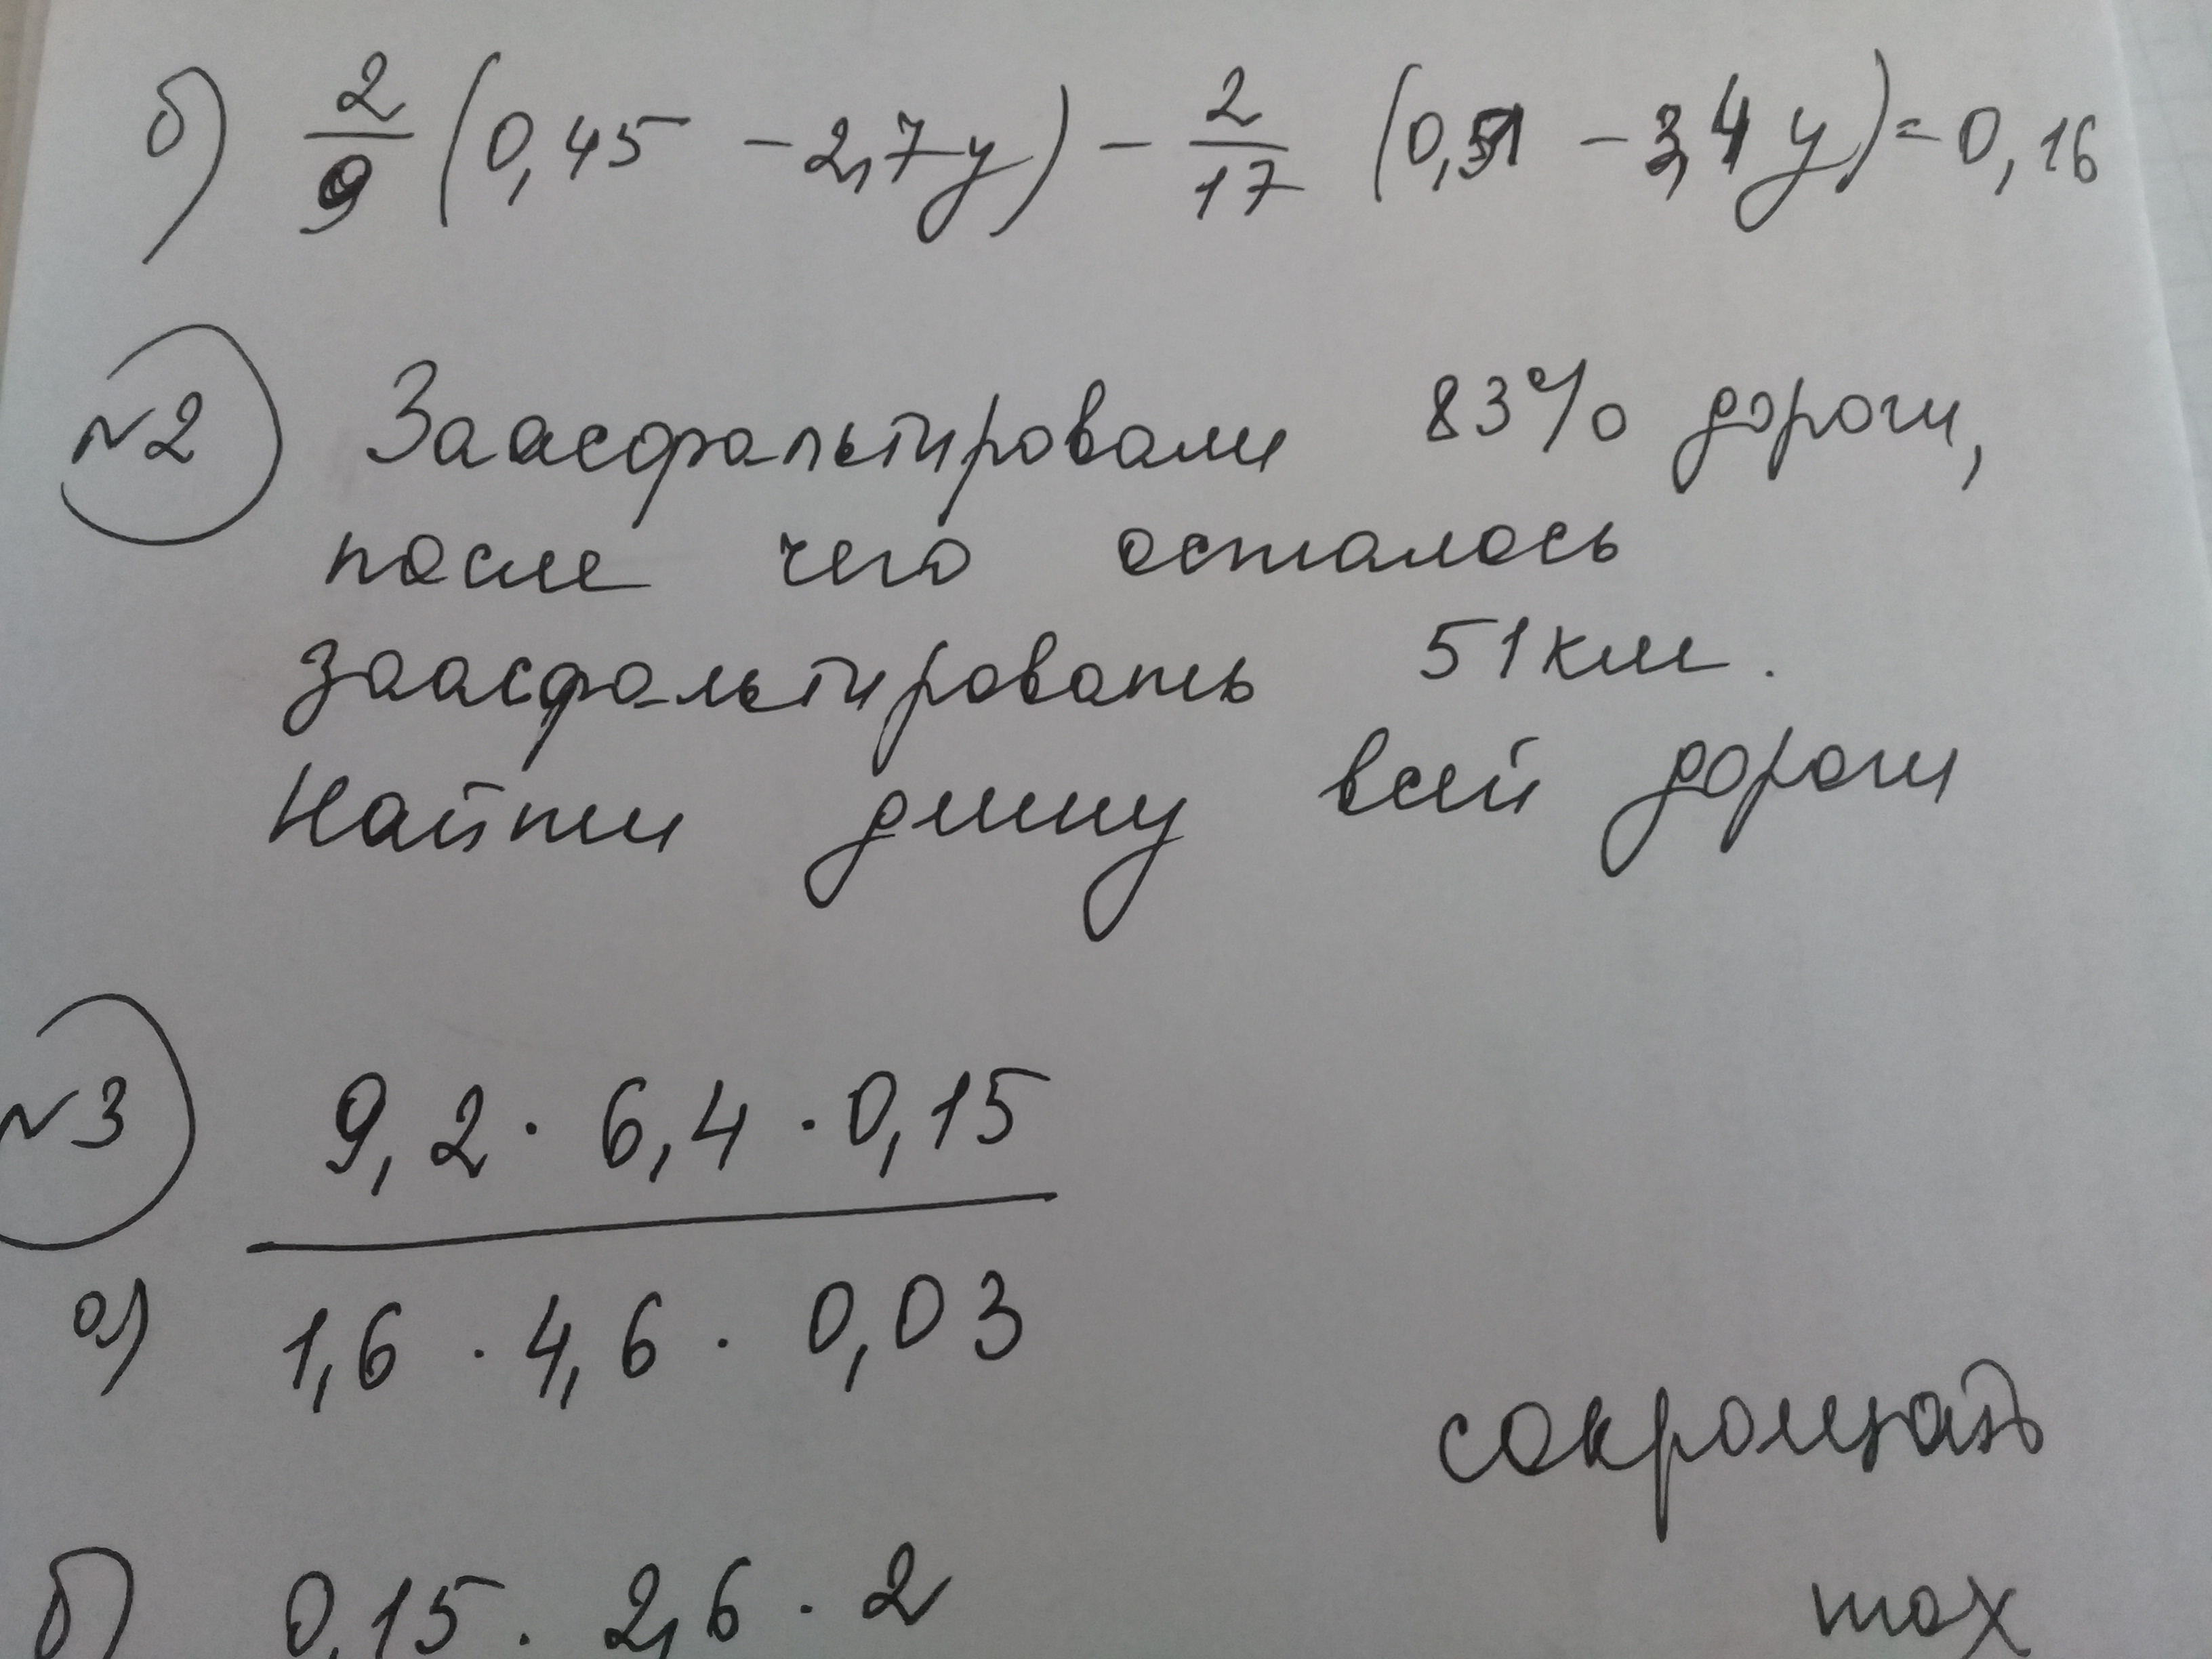 б) 2/9 (0,45 - 2,7y) - 2/17 (0,51 - 3,4y) = 0,16
№2 Заасфальтировали 83% дороги,
после чего осталось
заасфальтировать 51км.
Найти длину всей дороги
№3 9,2 · 6,4 · 0,15
а) 1,6 · 4,6 · 0,03
сокращать
max
б) 0,15 · 2,6 · 2